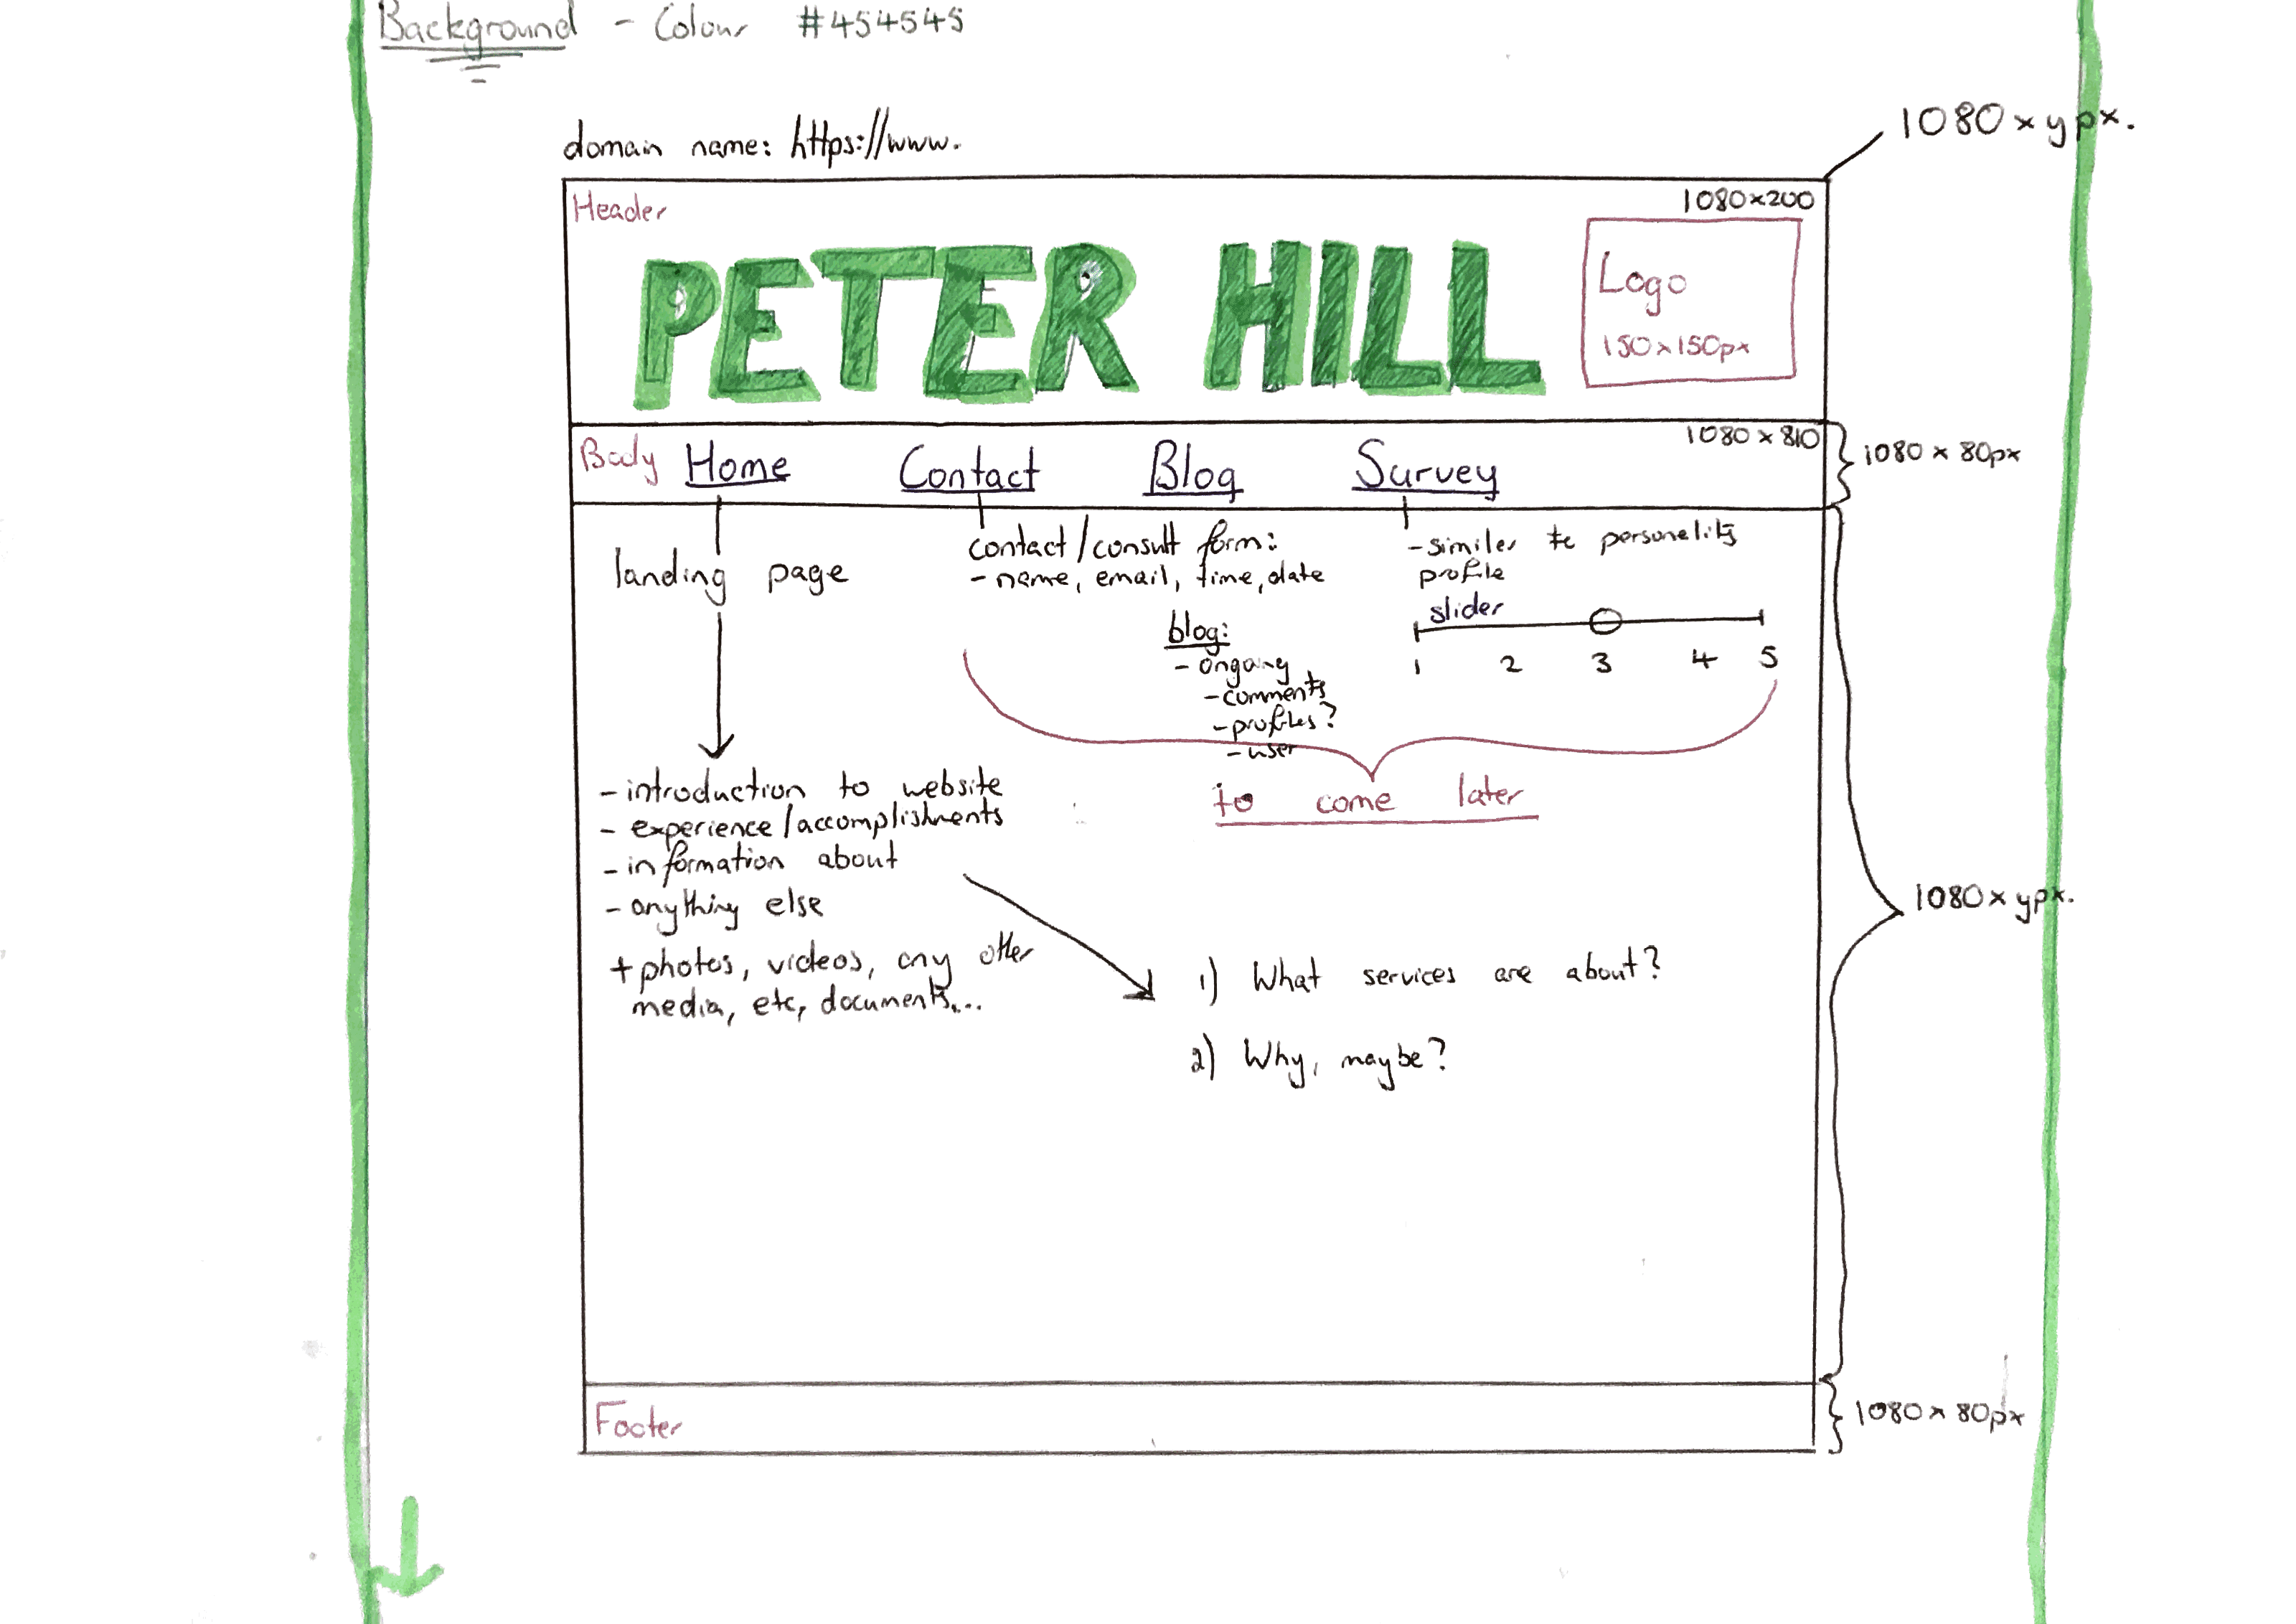 Background - Colour #454545
domain name: https://www.
1080 x y px.
Header
1080x200
PETER HILL
Logo
150x150px
Body
Home
Contact
Blog
Survey
1080 x 810
1080 x 80px
landing page
contact/consult form:
- name, email, time, date
- similer to personality
profile
slider
1 2 3 4 5
blog:
- ongoing
- comments
- profiles?
- user
to come later
- introduction to website
- experience/accomplishments
- information about
- anything else
+ photos, videos, any other
media, etc, documents...
1) What services are about?
2) Why, maybe?
1080 x y px.
Footer
1080 x 80px